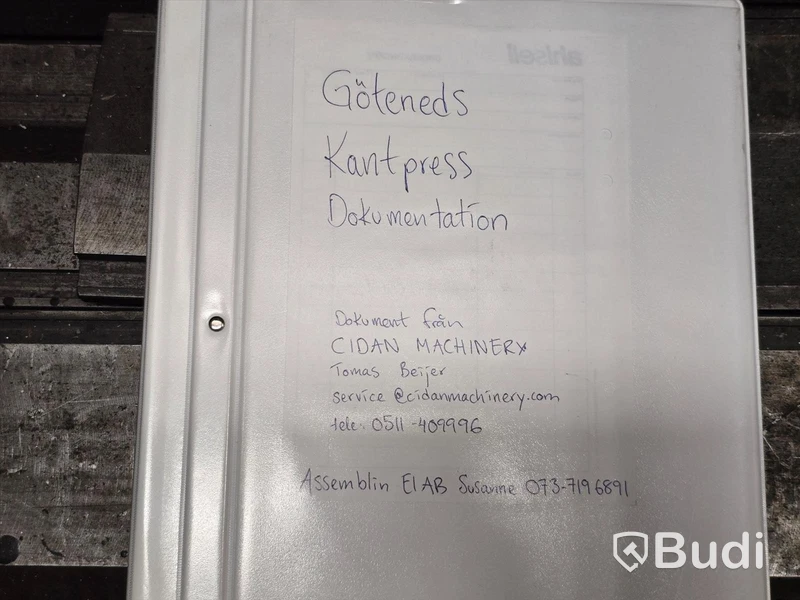 ahlsell
Göteneds
Kantpress
Dokumentation
Dokument från
CIDAN MACHINERY
Tomas Beijer
service@cidanmachinery.com
tele: 0511-409996
Assemblin El AB Susanne 073-7196891
Budi